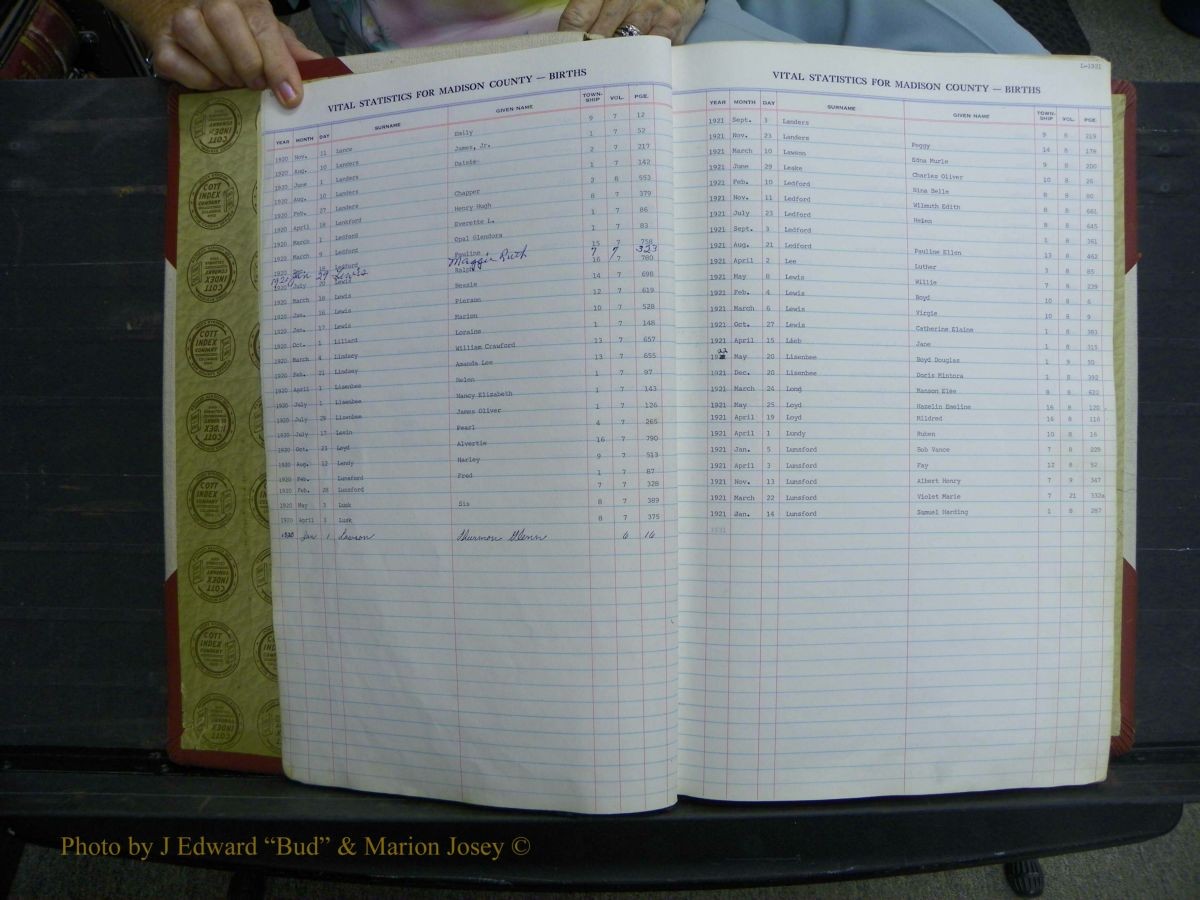 VITAL STATISTICS FOR MADISON COUNTY — BIRTHS
YEAR MONTH DAY SURNAME GIVEN NAME TOWN-SHIP VOL. PGE.
1920 Nov. 11 Lance Emily 9 7 12
1920 Aug. 10 Landers James, Jr. 1 7 52
1920 June 1 Landers Daisie 2 7 217
1920 Aug. 10 Landers 1 7 142
1920 Feb. 27 Landers Chapper 3 8 553
1920 April 18 Lankford Henry Hugh 8 7 379
1920 March 1 Ledford Everette L. 1 7 86
1920 March 9 Ledford Opal Glendora 1 7 83
1920 Ledford Pauline 15 7 758
1921 Jan 29 Lewis Maggie Ruth 7 7 323
1920 July 20 Lewis Ralph 16 7 780
1920 March 18 Lewis Bessie 14 7 698
1920 Jan. 16 Lewis Pierson 12 7 619
1920 Jan. 17 Lewis Marion 10 7 528
1920 Oct. 1 Lillard Loraine 1 7 148
1920 March 4 Lindsey William Crawford 13 7 657
1920 Feb. 21 Lindsey Amanda Lee 13 7 655
1920 April 1 Lisenbee Helen 1 7 97
1920 July 1 Lisenbee Nancy Elizabeth 1 7 143
1920 July 29 Lisenbee James Oliver 1 7 126
1920 July 17 Lovin Pearl 4 7 265
1920 Oct. 23 Loyd Alvertie 16 7 790
1920 Aug. 12 Lundy Harley 9 7 513
1920 Feb. Lunsford Fred 1 7 87
1920 Feb. 28 Lunsford 7 7 328
1920 May 3 Lusk Sis 8 7 389
1920 April 3 Lusk 8 7 375
1920 Jan 1 Lawson Thurmon Glenn 6 16
L-1921
VITAL STATISTICS FOR MADISON COUNTY — BIRTHS
YEAR MONTH DAY SURNAME GIVEN NAME TOWN-SHIP VOL. PGE.
1921 Sept. 3 Landers 9 8 219
1921 Nov. 23 Landers Peggy 14 8 178
1921 March 10 Lawson Edna Murle 9 8 200
1921 June 29 Leake Charles Oliver 10 8 26
1921 Feb. 10 Ledford Nina Belle 8 8 80
1921 Nov. 11 Ledford Wilmuth Edith 8 8 661
1921 July 23 Ledford Helen 8 8 645
1921 Sept. 3 Ledford 1 8 361
1921 Aug. 21 Ledford Pauline Ellen 13 8 462
1921 April 2 Lee Luther 3 8 85
1921 May 8 Lewis Willie 7 8 239
1921 Feb. 4 Lewis Boyd 10 8 6
1921 March 6 Lewis Virgie 10 8 9
1921 Oct. 27 Lewis Catherine Elaine 1 8 381
1921 April 15 Lieb Jane 1 8 315
1922 May 20 Lisenbee Boyd Douglas 1 9 50
1921 Dec. 20 Lisenbee Doris Mintora 1 8 392
1921 March 24 Long Hanson Elee 8 8 622
1921 May 25 Loyd Hazelin Emeline 16 8 120
1921 April 19 Loyd Mildred 16 8 116
1921 April 1 Lundy Ruben 10 8 16
1921 Jan. 5 Lunsford Bob Vance 7 8 225
1921 April 3 Lunsford Fay 12 8 52
1921 Nov. 13 Lunsford Albert Henry 7 9 347
1921 March 22 Lunsford Violet Marie 7 21 332a
1921 Jan. 14 Lunsford Samuel Harding 1 8 287
1921
COTT INDEX COMPANY
Photo by J Edward “Bud” & Marion Josey ©